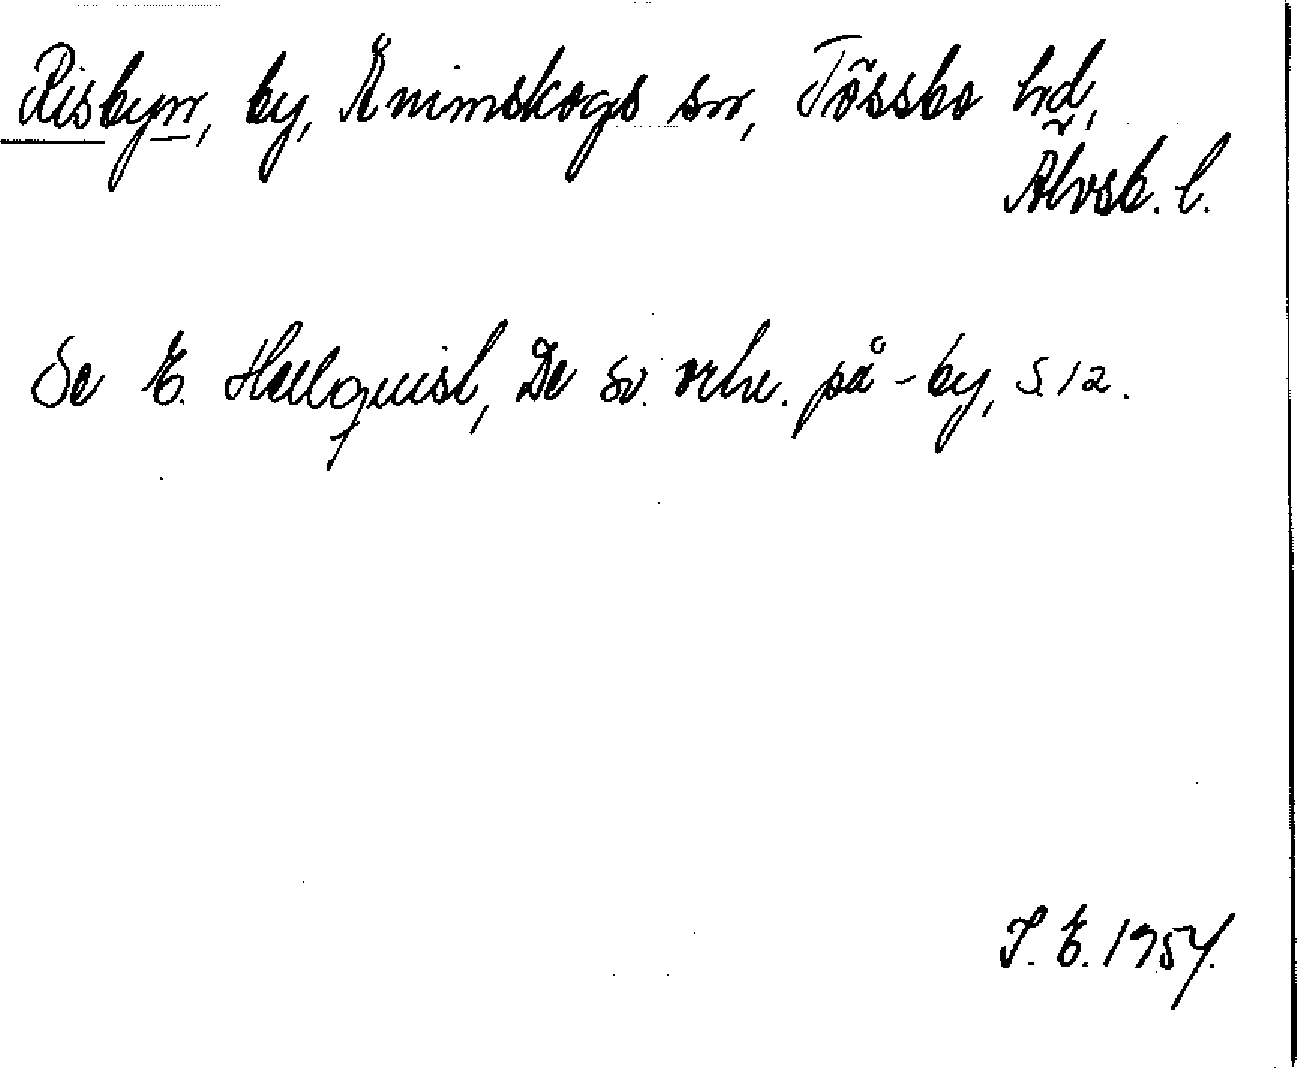 Risbyn, by, Ånimskogs sn, Tössbo hd,
Älvsb. l.
Se E. Hellquist, De sv. ortn. på -by, s. 12.
I. E. 1954.